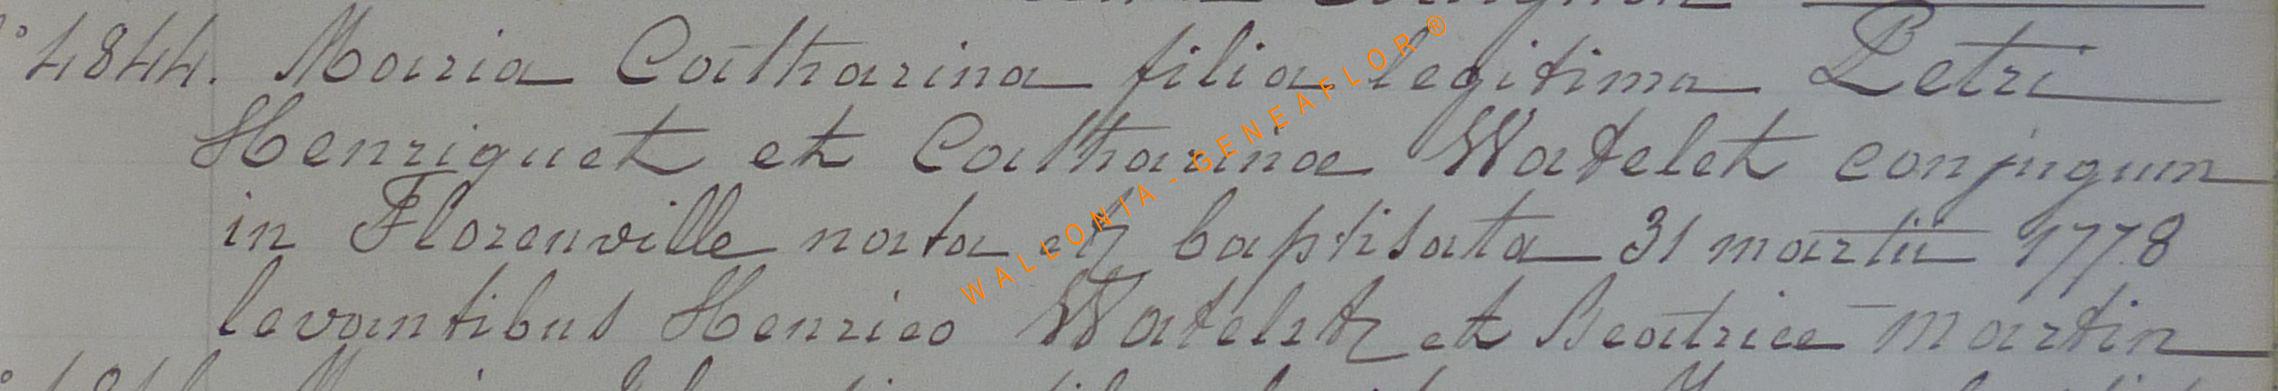 N° 4844. Maria Catharina filia legitima Petri
Henriquet et Catharinæ Watelet conjugum
in Florenville nata et baptisata 31 martii 1778
levantibus Henrico Watelet et Beatrice Martin
WALLONIA - GENEAFLOR®